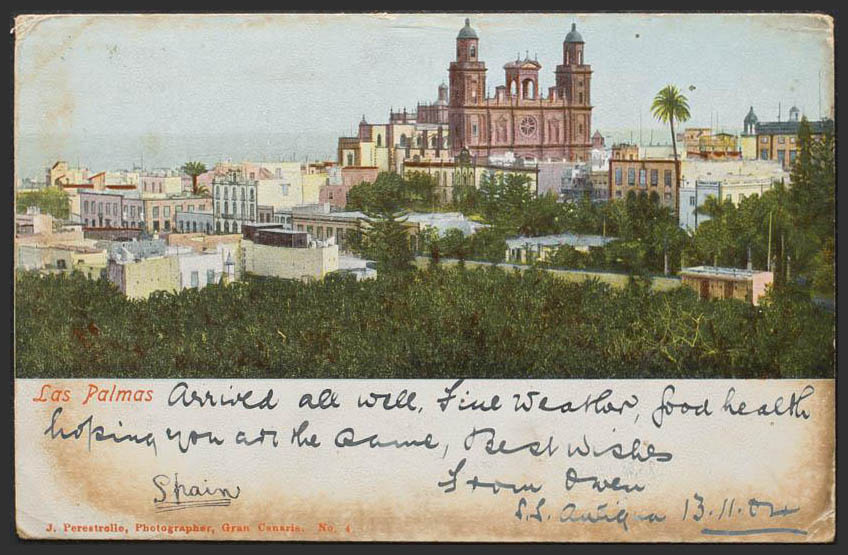 Las Palmas Arrived all well, Fine Weather, good health
hoping you are the same, Best wishes
From Owen
Spain
S.S. Antigua 13.11.04
J. Perestrollo, Photographer, Gran Canaria. No. 4